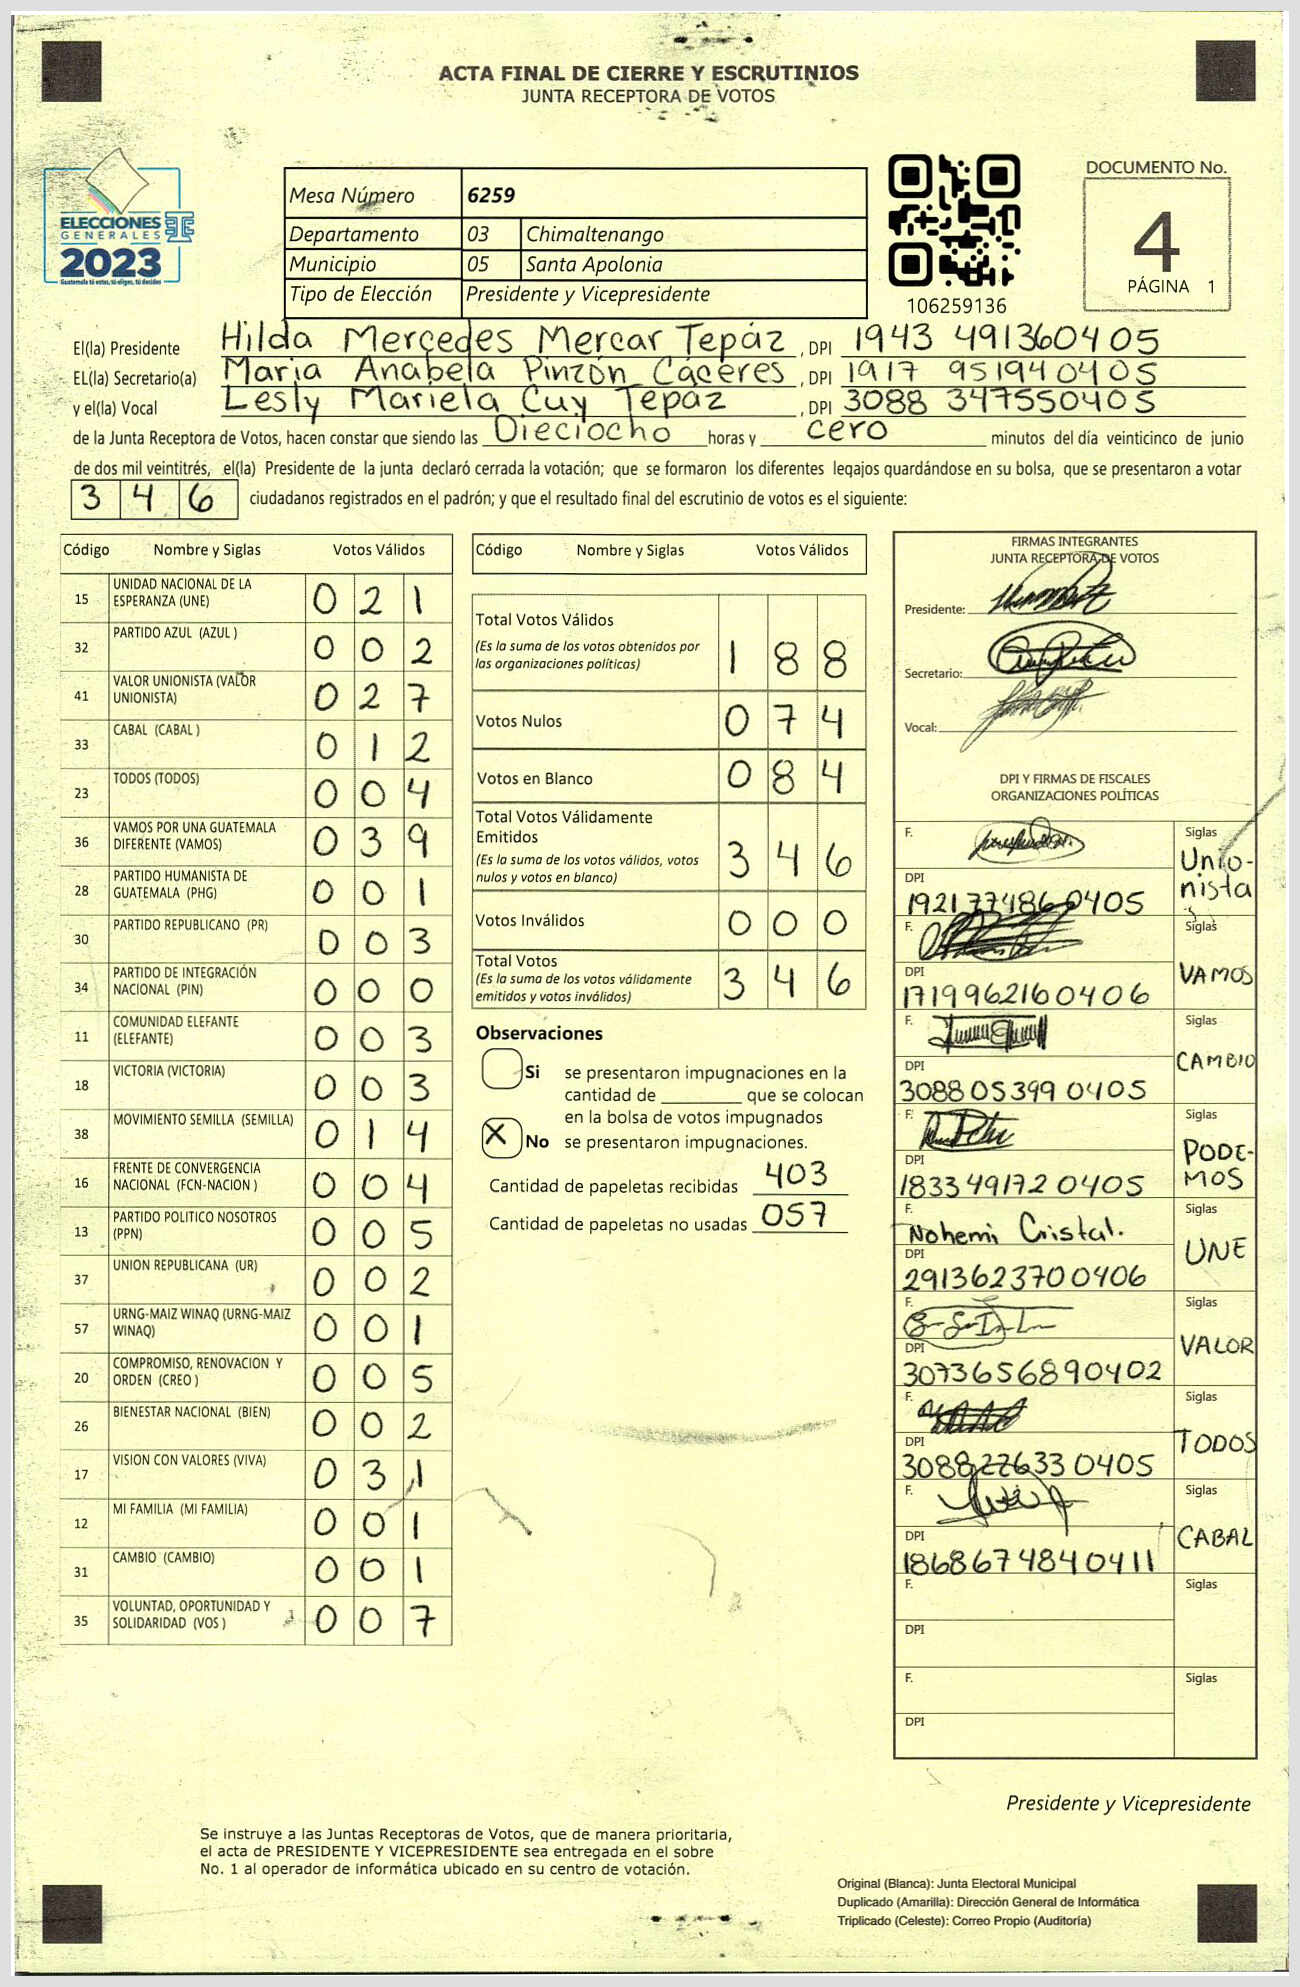 ACTA FINAL DE CIERRE Y ESCRUTINIOS
JUNTA RECEPTORA DE VOTOS
ELECCIONES
GENERALES
2023
Guatemala tú votas, tú eliges, tú decides
Mesa Número 6259
Departamento 03 Chimaltenango
Municipio 05 Santa Apolonia
Tipo de Elección Presidente y Vicepresidente
106259136
DOCUMENTO No.
4
PÁGINA 1
El(la) Presidente Hilda Mercedes Mercar Tepáz , DPI 1943 491360405
EL(la) Secretario(a) Maria Anabela Pinzón Cáceres , DPI 1917 951940405
y el(la) Vocal Lesly Mariela Cuy Tepaz , DPI 3088 347550405
de la Junta Receptora de Votos, hacen constar que siendo las Dieciocho horas y cero minutos del día veinticinco de junio
de dos mil veintitrés, el(la) Presidente de la junta declaró cerrada la votación; que se formaron los diferentes legajos quardándose en su bolsa, que se presentaron a votar
3 4 6 ciudadanos registrados en el padrón; y que el resultado final del escrutinio de votos es el siguiente:
Código Nombre y Siglas Votos Válidos
15 UNIDAD NACIONAL DE LA ESPERANZA (UNE) 0 2 1
32 PARTIDO AZUL (AZUL ) 0 0 2
41 VALOR UNIONISTA (VALOR UNIONISTA) 0 2 7
33 CABAL (CABAL ) 0 1 2
23 TODOS (TODOS) 0 0 4
36 VAMOS POR UNA GUATEMALA DIFERENTE (VAMOS) 0 3 9
28 PARTIDO HUMANISTA DE GUATEMALA (PHG) 0 0 1
30 PARTIDO REPUBLICANO (PR) 0 0 3
34 PARTIDO DE INTEGRACIÓN NACIONAL (PIN) 0 0 0
11 COMUNIDAD ELEFANTE (ELEFANTE) 0 0 3
18 VICTORIA (VICTORIA) 0 0 3
38 MOVIMIENTO SEMILLA (SEMILLA) 0 1 4
16 FRENTE DE CONVERGENCIA NACIONAL (FCN-NACION ) 0 0 4
13 PARTIDO POLITICO NOSOTROS (PPN) 0 0 5
37 UNION REPUBLICANA (UR) 0 0 2
57 URNG-MAIZ WINAQ (URNG-MAIZ WINAQ) 0 0 1
20 COMPROMISO, RENOVACION Y ORDEN (CREO ) 0 0 5
26 BIENESTAR NACIONAL (BIEN) 0 0 2
17 VISION CON VALORES (VIVA) 0 3 1
12 MI FAMILIA (MI FAMILIA) 0 0 1
31 CAMBIO (CAMBIO) 0 0 1
35 VOLUNTAD, OPORTUNIDAD Y SOLIDARIDAD (VOS ) 0 0 7
Código Nombre y Siglas Votos Válidos
Total Votos Válidos
(Es la suma de los votos obtenidos por
las organizaciones políticas) 1 8 8
Votos Nulos 0 7 4
Votos en Blanco 0 8 4
Total Votos Válidamente
Emitidos
(Es la suma de los votos válidos, votos
nulos y votos en blanco) 3 4 6
Votos Inválidos 0 0 0
Total Votos
(Es la suma de los votos válidamente
emitidos y votos inválidos) 3 4 6
Observaciones
Si se presentaron impugnaciones en la
cantidad de ________ que se colocan
en la bolsa de votos impugnados
X No se presentaron impugnaciones.
Cantidad de papeletas recibidas 403
Cantidad de papeletas no usadas 057
FIRMAS INTEGRANTES
JUNTA RECEPTORA DE VOTOS
Presidente:
Secretario:
Vocal:
DPI Y FIRMAS DE FISCALES
ORGANIZACIONES POLÍTICAS
F. Siglas
Unio-
nista
DPI
1921774860405
F. Siglas
VAMOS
DPI
1719962160406
F. Siglas
CAMBIO
DPI
3088053990405
F. Siglas
PODE-
MOS
DPI
1833491720405
F. Siglas
Nohemi Cristal.
UNE
DPI
2913623700406
F. Siglas
VALOR
DPI
3073656890402
F. Siglas
TODOS
DPI
3088226330405
F. Siglas
CABAL
DPI
1868674840411
F. Siglas
DPI
F. Siglas
DPI
Presidente y Vicepresidente
Se instruye a las Juntas Receptoras de Votos, que de manera prioritaria,
el acta de PRESIDENTE Y VICEPRESIDENTE sea entregada en el sobre
No. 1 al operador de informática ubicado en su centro de votación.
Original (Blanca): Junta Electoral Municipal
Duplicado (Amarilla): Dirección General de Informática
Triplicado (Celeste): Correo Propio (Auditoría)